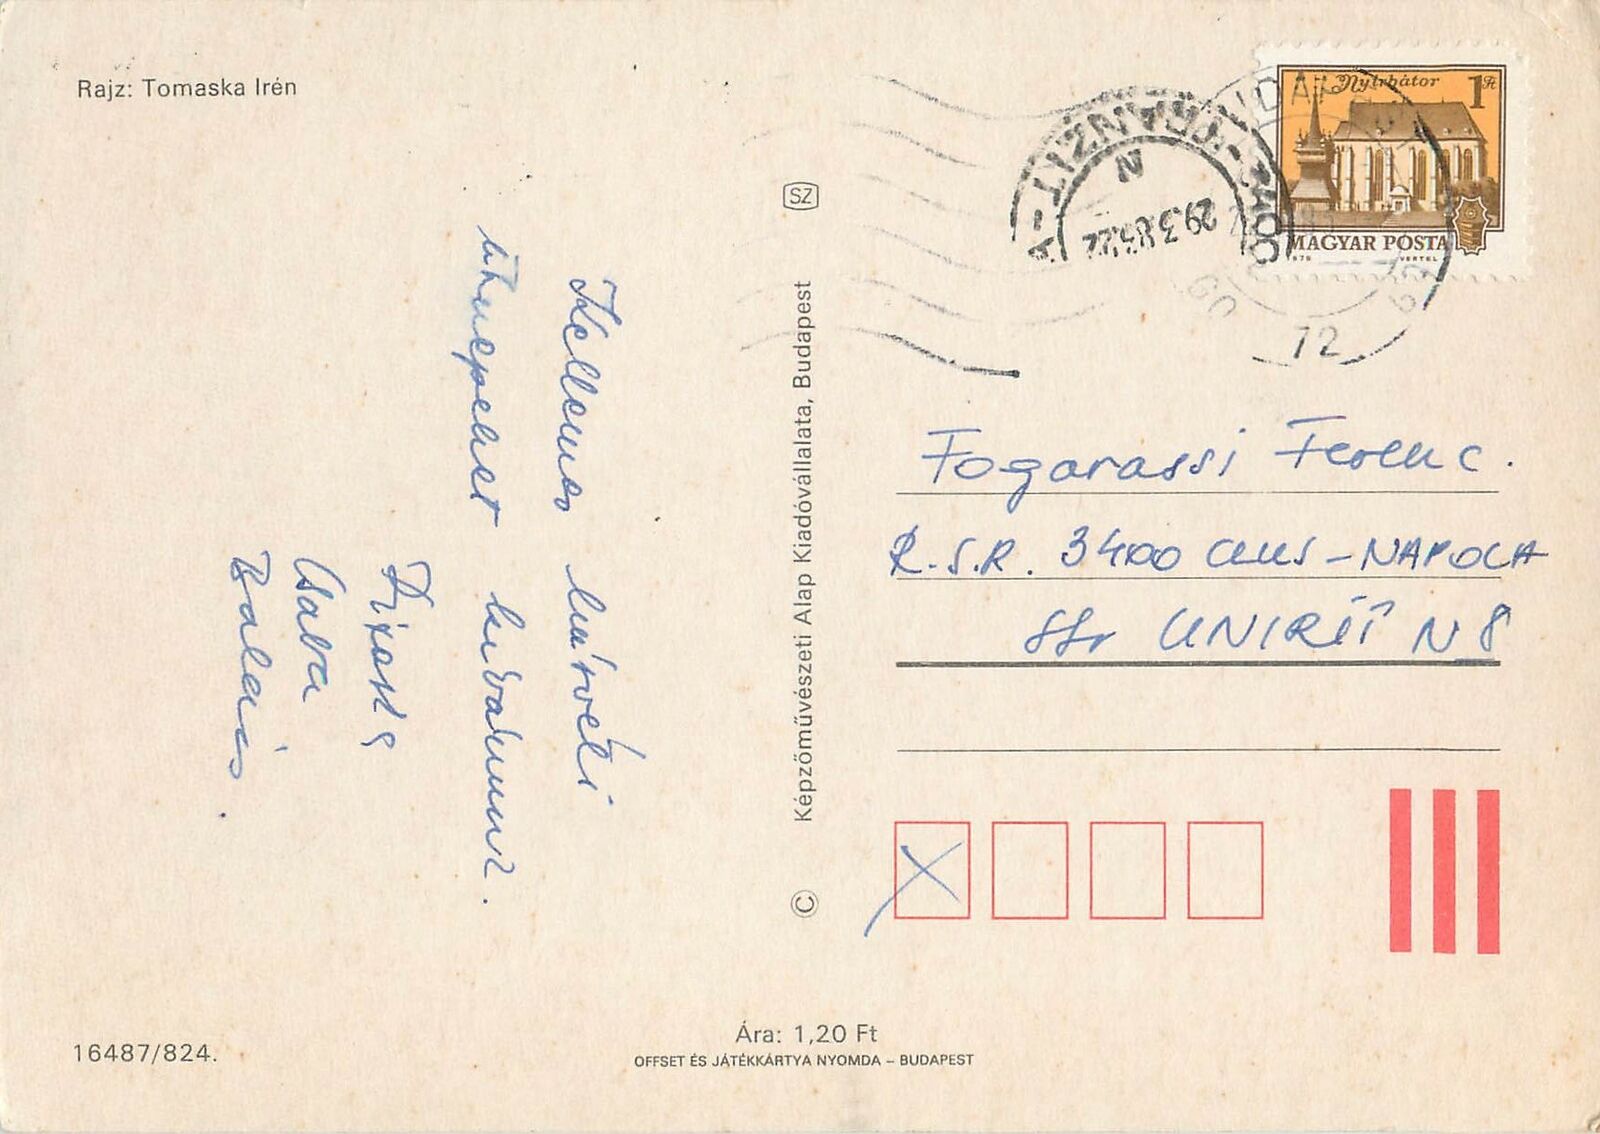 Rajz: Tomaska Irén
Kellemes húsvéti
ünnepeket kívánunk.
Csaba
Balázs.
SZ
© Képzőművészeti Alap Kiadóvállalata, Budapest
Nyírbátor 1 Ft
MAGYAR POSTA
VERTEL
TRANZIT
3400
29.3.85.22
72
Fogarassi Ferenc.
R.S.R. 3400 CLUJ-NAPOCA
Str UNIRII N 8
16487/824.
Ára: 1,20 Ft
OFFSET ÉS JÁTÉKKÁRTYA NYOMDA – BUDAPEST